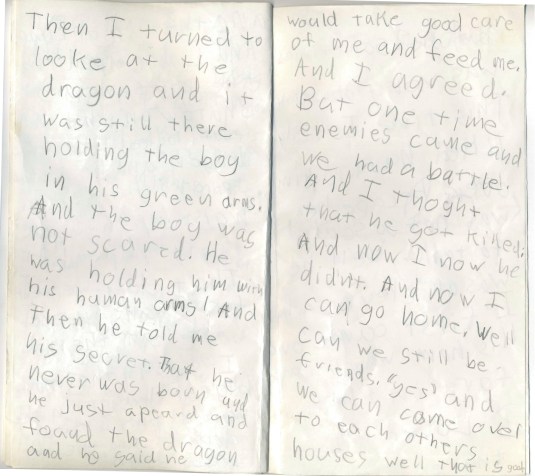 Then I turned to
looke at the
dragon and it
was still there
holding the boy
in his green arms.
And the boy was
not scared. He
was holding him with
his human arms! And
then he told me
his secret. That he
never was born and
he just apeard and
foaad the dragon
and he said he
would take good care
of me and feed me.
And I agreed.
But one time
enemies came and
we had a battle.
And I thoght
that he got killed.
And now I now he
didnt. And now I
can go home. Well
can we still be
friends. "yes" and
we can come over
to each others
houses well that is good